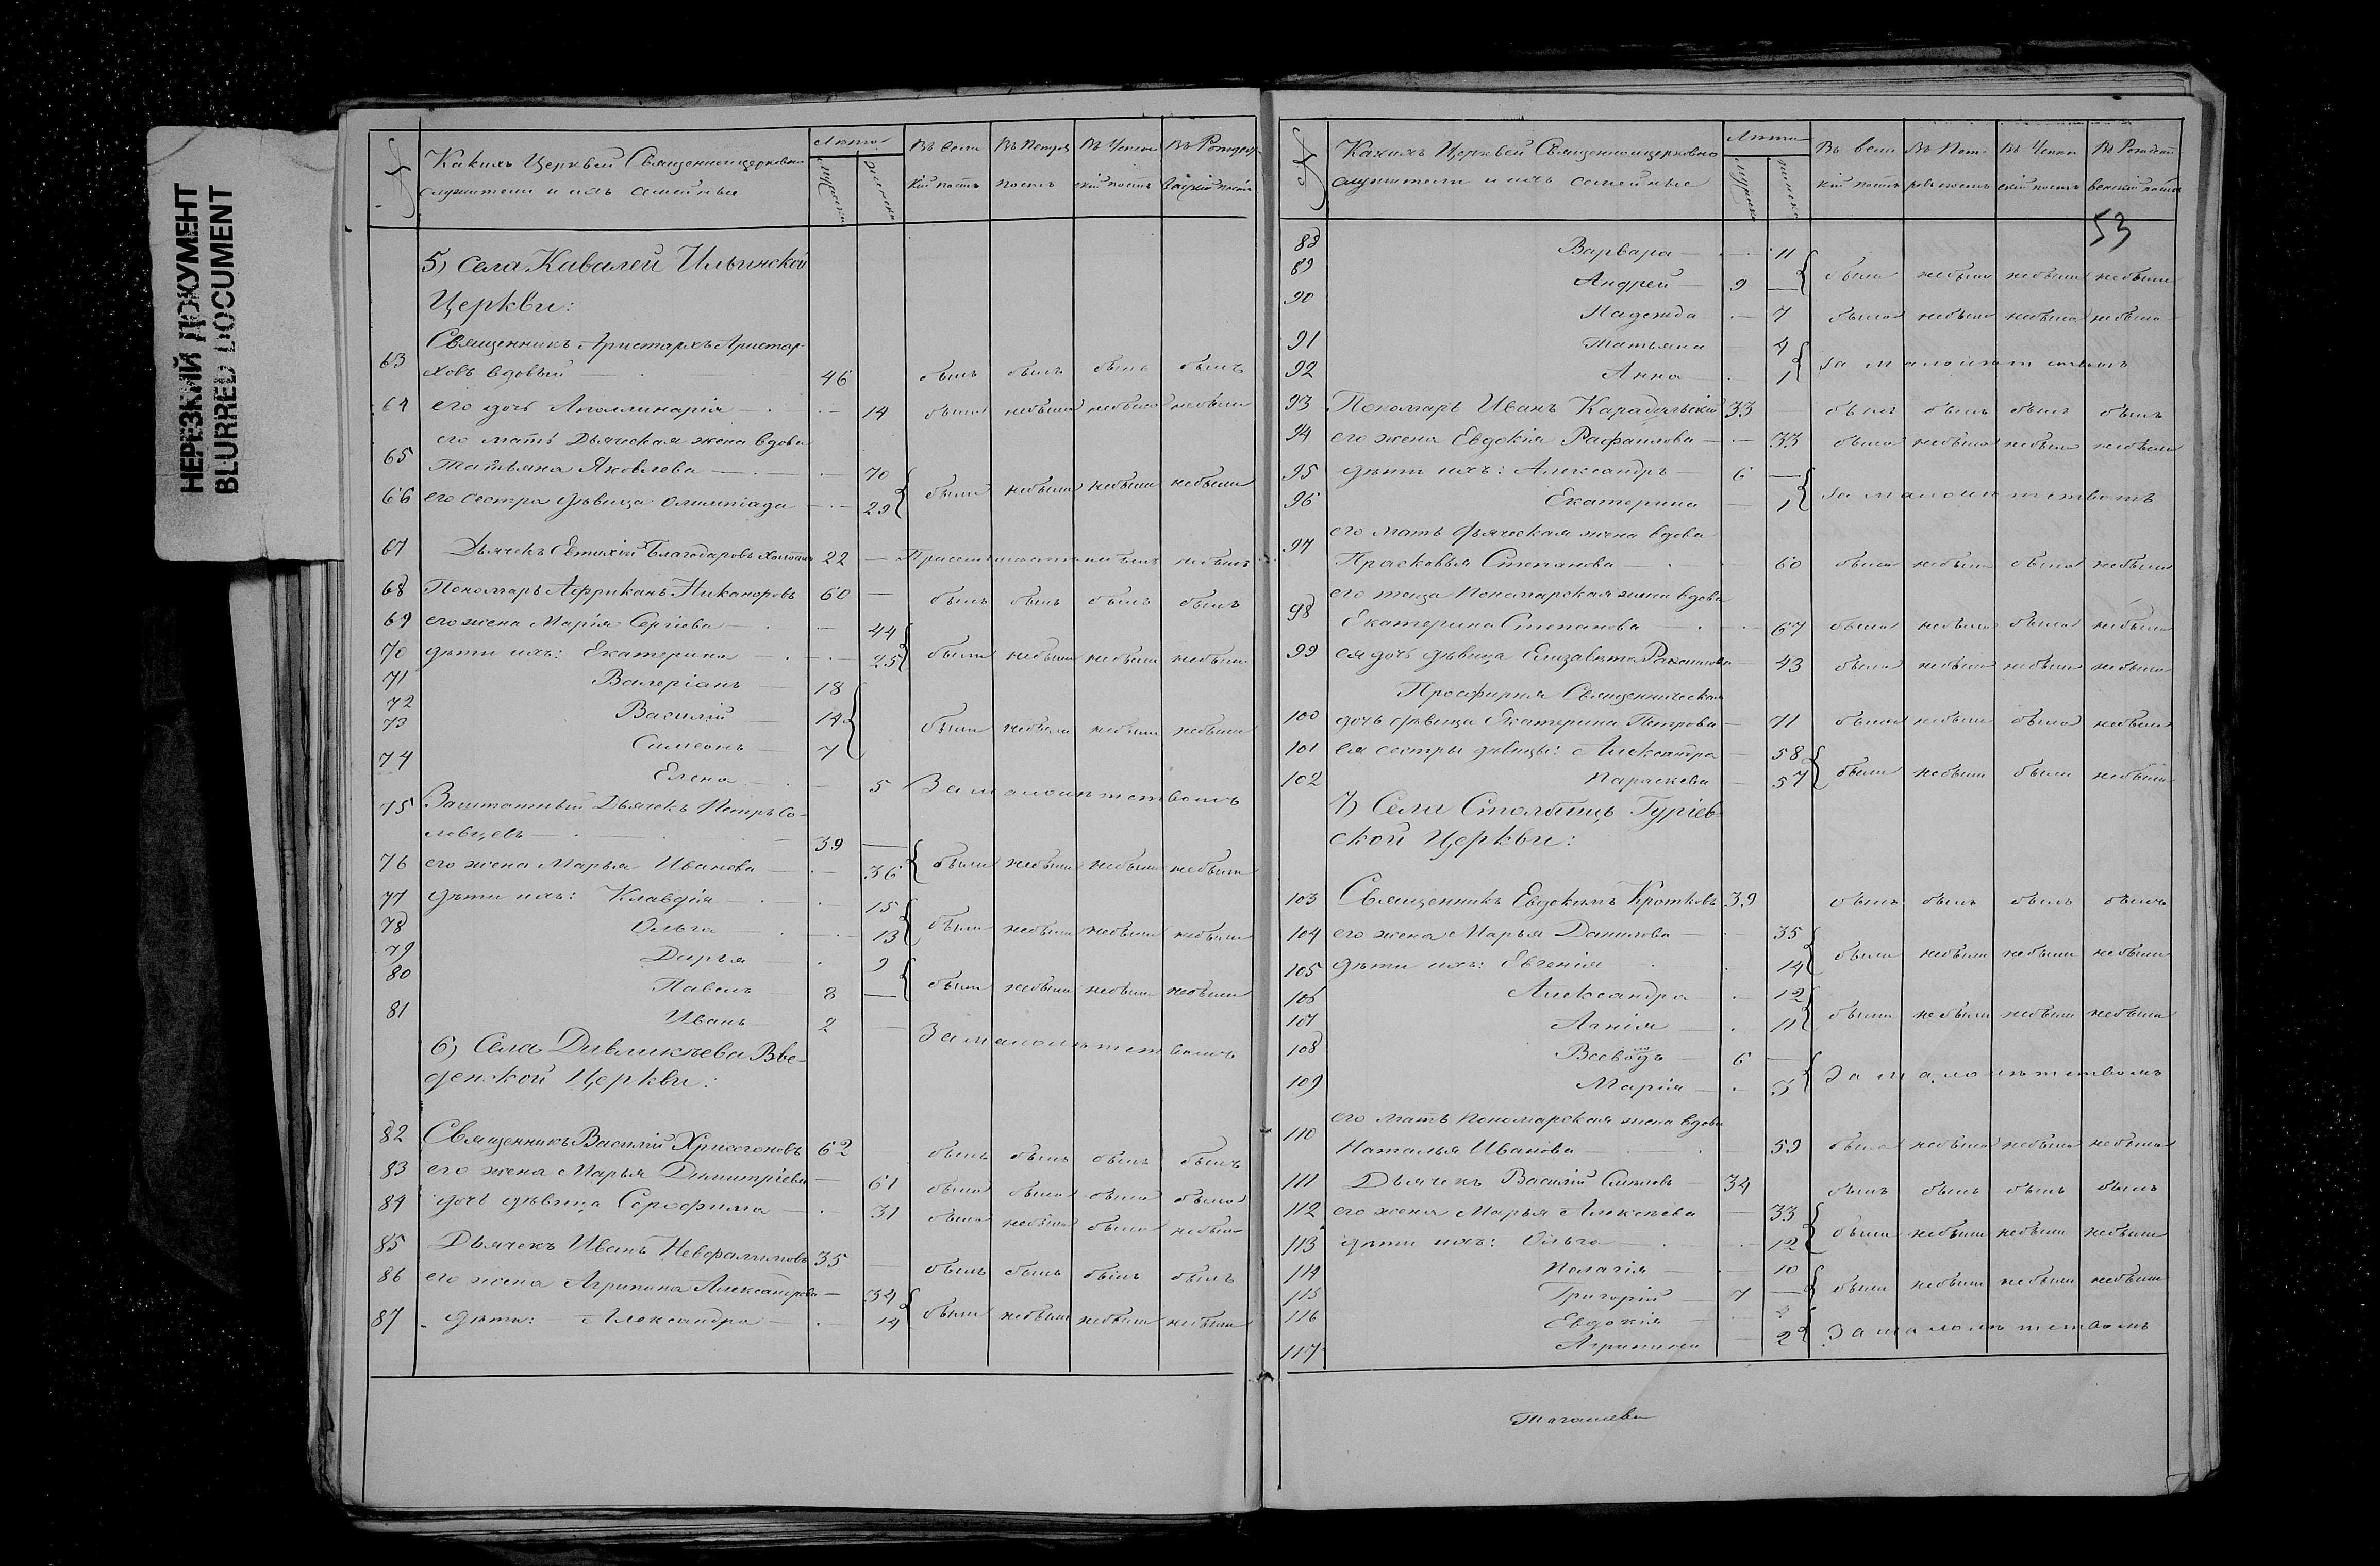 НЕРЕЗКИЙ ДОКУМЕНТ
BLURRED DOCUMENT
№ Какихъ Церквей Священноцерковно Лѣта Въ Вели Въ Петров Въ Успен Въ Рождест
служители и ихъ семейные мужеска женска кій постъ постъ скій постъ венскій постъ
5) Села Кивалей Ильинской
Церкви:
Священникъ Аристархъ Аристар-
63 ховъ вдовый 46 былъ былъ былъ былъ
64 его дочь Аполлинарія 14 была небыла небыла небыла
его мать Дьяческая жена вдова
65 Татьяна Яковлева 70
66 его сестра дѣвица Олимпіада 29 были небыли небыли небыли
67 Дьячекъ Евтихій Благодаровъ холостъ 22 — небылъ небылъ
68 Пономарь Африканъ Никаноровъ 60 — былъ былъ былъ былъ
69 его жена Марія Сергіева 44
70 дѣти ихъ: Екатерина 25 были небыли небыли небыли
71 Валеріанъ 18
72 Василій 14
73 Симеонъ 7 были небыли небыли небыли
74 Елена 5 За малолѣтствомъ
75 Заштатный Дьячекъ Петръ Со-
ловцевъ 39 —
76 его жена Марья Иванова 36 были небыли небыли небыли
77 дѣти ихъ: Клавдія 15
78 Ольга 13 были небыли небыли небыли
79 Дарья 9
80 Павелъ 8 — были небыли небыли небыли
81 Иванъ 2 — За малолѣтствомъ
6) Села Дивликеева Вве-
денской Церкви:
82 Священникъ Василій Хрисогоновъ 62 былъ былъ былъ былъ
83 его жена Марья Димитріева 61 была была была была
84 дочь дѣвица Серафима 31 была небыла была небыла
85 Дьячекъ Иванъ Невфалимовъ 35 — былъ былъ былъ былъ
86 его жена Агрипина Александрова 34
87 дѣти: Александра 14 были небыли небыли небыли
№ Какихъ Церквей Священноцерковно Лѣта Въ Вели Въ Пет- Въ Успен Въ Рождест
служители и ихъ семейные мужеска женска кій постъ ровъ постъ скій постъ венскій постъ
53
88 Варвара 11
89 Андрей 9 — были небыли небыли небыли
90 Надежда 7 была небыла небыла небыла
91 Татьяна 4
92 Анна 1 За малолѣтствомъ
93 Пономарь Иванъ Карадульскій 33 — былъ былъ былъ былъ
94 его жена Евдокія Рафаилова 33 была небыла небыла небыла
95 дѣти ихъ: Александръ 6 —
96 Екатерина 1 За малолѣтствомъ
его мать дьяческая жена вдова
97 Прасковья Степанова 60 была небыла была небыла
его теща Пономарская жена вдова
98 Екатерина Степанова 67 была небыла была небыла
99 ея дочь дѣвица Елизавета 43 была небыла небыла небыла
Просфирня Священническая
100 дочь дѣвица Екатерина Петрова 71 была небыла была небыла
101 ея сестры дѣвицы: Александра 58
102 Параскева 57 были небыли были небыли
7) Села Столбищъ Гуріев-
ской Церкви:
103 Священникъ Евдокимъ Кротковъ 39 былъ былъ былъ былъ
104 его жена Марья Данилова 35
105 дѣти ихъ: Евгенія 14 были небыли небыли небыли
106 Александра 12
107 Агнія 11 были небыли небыли небыли
108 Всеволодъ 6 —
109 Марія 3 За малолѣтствомъ
его мать Пономарская жена вдова
110 Наталья Иванова 59 была небыла небыла небыла
111 Дьячекъ Василій 34 былъ былъ былъ былъ
112 его жена Марья Алексѣева 33
113 дѣти ихъ: Ольга 12 были небыли небыли небыли
114 Пелагія 10
115 Григорій 7 — были небыли небыли небыли
116 Евдокія
117 Агрипина 2 За малолѣтствомъ